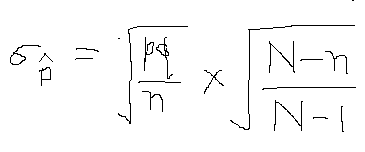 σ_p̂ = √(pq/n) × √((N-n)/(N-1))